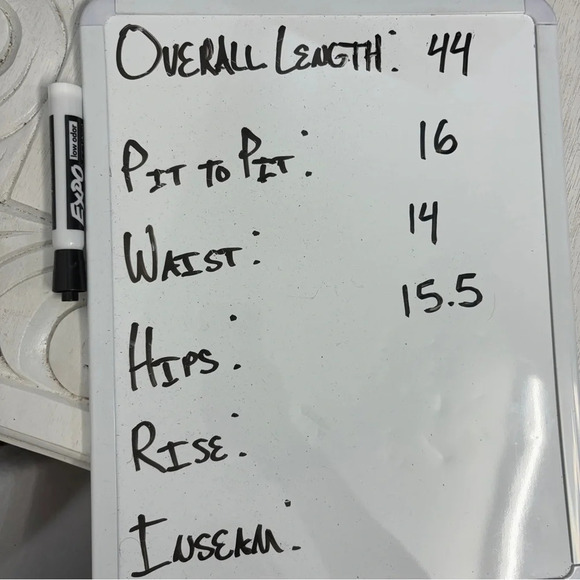 OVERALL LENGTH: 44
PIT TO PIT: 16
WAIST: 14
HIPS: 15.5
RISE:
INSEAM:
EXPO low odor